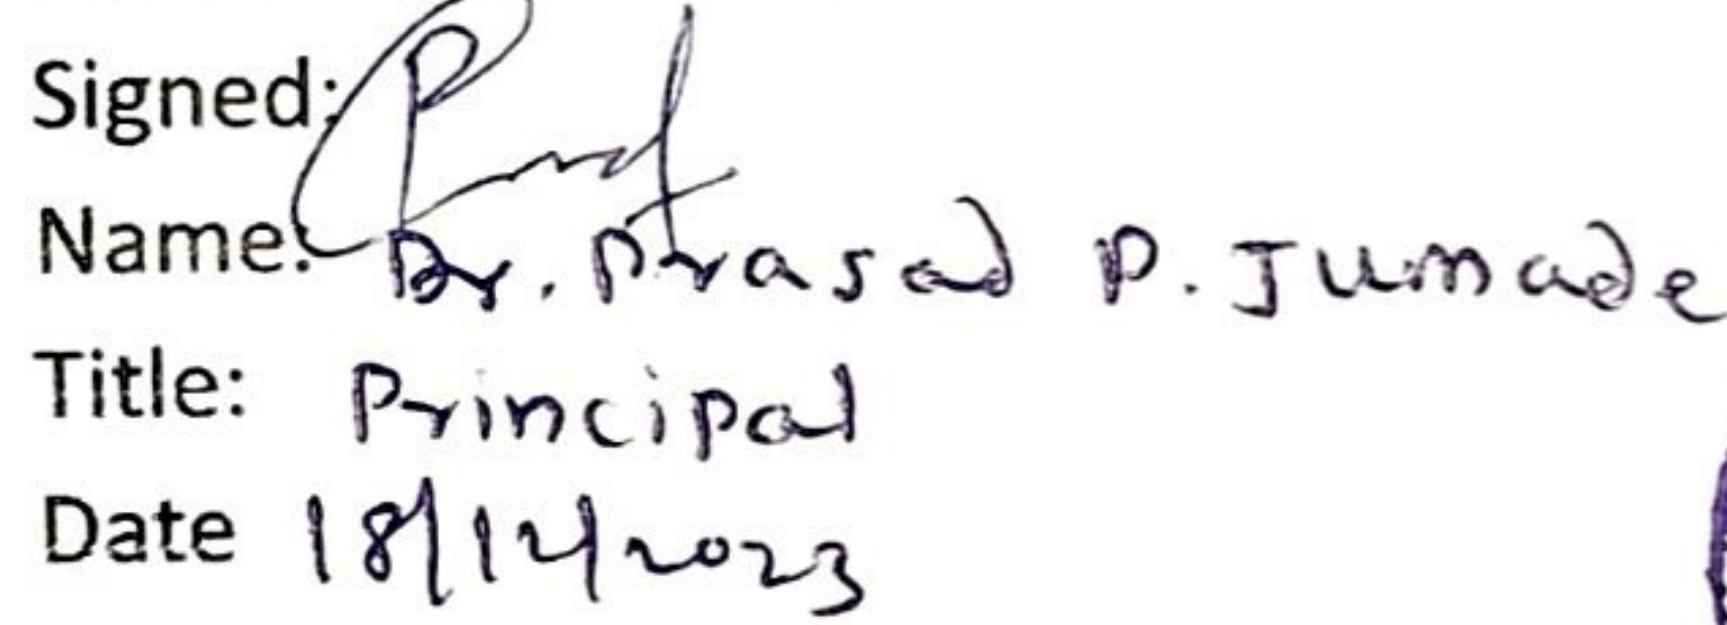 Signed:
Name: Dr. Prasad P. Jumade
Title: Principal
Date 18/12/2023